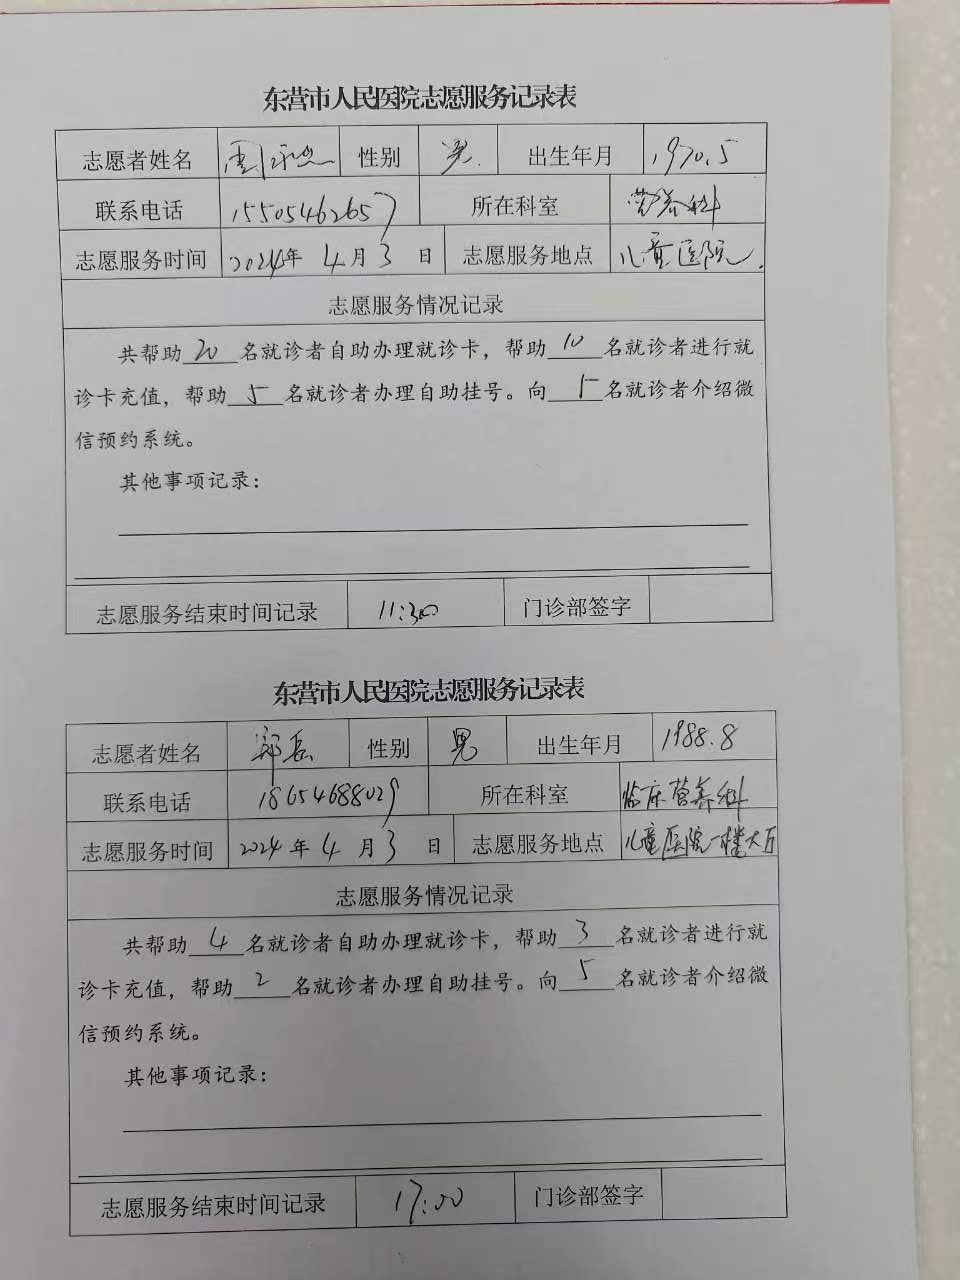 东营市人民医院志愿服务记录表
志愿者姓名 周 性别 男 出生年月 1970.5
联系电话 15505462657 所在科室 营养科
志愿服务时间 2024年 4月 3日 志愿服务地点 儿童医院.
志愿服务情况记录
共帮助20名就诊者自助办理就诊卡，帮助10名就诊者进行就
诊卡充值，帮助5名就诊者办理自助挂号。向5名就诊者介绍微
信预约系统。
其他事项记录：
志愿服务结束时间记录 11:30 门诊部签字
东营市人民医院志愿服务记录表
志愿者姓名 郭岳 性别 男 出生年月 1988.8
联系电话 18654688029 所在科室 临床营养科
志愿服务时间 2024年 4月 3日 志愿服务地点 儿童医院一楼大厅
志愿服务情况记录
共帮助4名就诊者自助办理就诊卡，帮助3名就诊者进行就
诊卡充值，帮助2名就诊者办理自助挂号。向5名就诊者介绍微
信预约系统。
其他事项记录：
志愿服务结束时间记录 17:00 门诊部签字